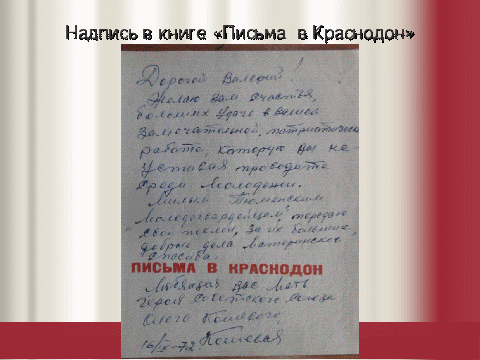 Надпись в книге «Письма в Краснодон»
Дорогой Валерий!
Желаю вам счастья,
больших удач в вашей
замечательной, патриотической
работе, которую вы не
уставая проводите
среди молодежи.
Милым Тюменским
"молодогвардейцам" передаю
свой поклон, за их большие,
добрые дела материнское
спасибо.
ПИСЬМА В КРАСНОДОН
Любящая вас мать
героя Советского Союза
Олега Кошевого.
16/X-72 Кошевая